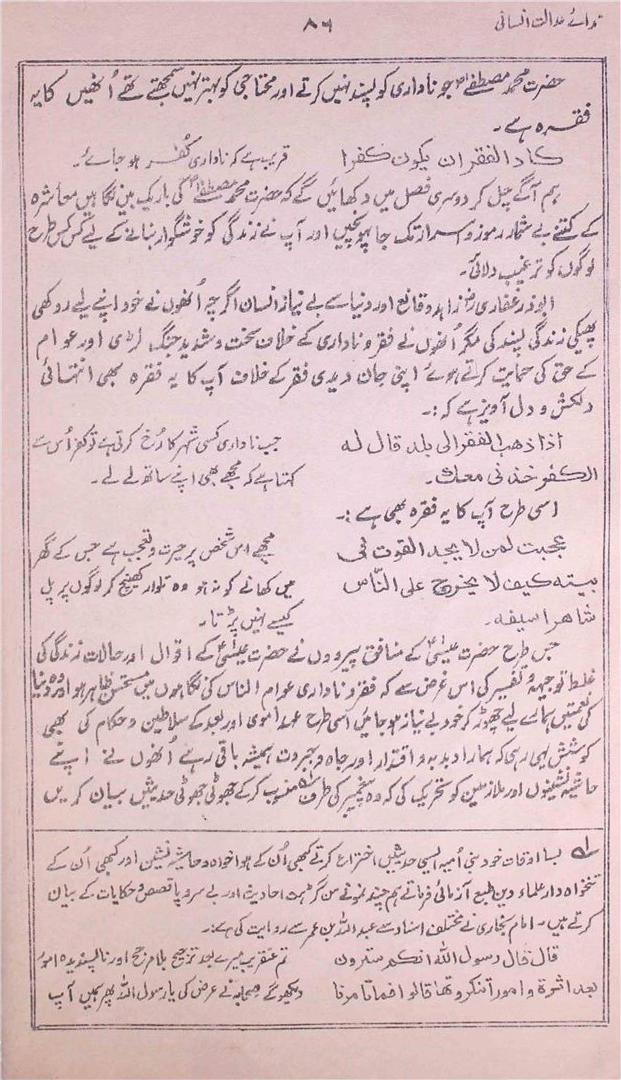 ندائے عدالت انسانی ۸۶
حضرت محمد مصطفےٰؐ جو ناداری کو پسند نہیں کرتے اور محتاجی کو بہتر نہیں سمجھتے تھے اُنھیں کا یہ
فقرہ ہے۔
كاد الفقر ان يكون كفرا قریب ہے کہ ناداری کُفر ہو جائے۔
ہم آگے چل کر دوسری فصل میں دکھائیں گے کہ حضرت محمد مصطفےٰؐ کی باریک بین نگاہیں معاشرہ
کے کتنے بے شمار رموز و اسرار تک جا پہونچیں اور آپ نے زندگی کو خوشگوار بنانے کے لیے کس کس طرح
لوگوں کو ترغیب دلائی۔
ابوذر غفاریؓ زاہد و قانع اور دنیا سے بے نیاز انسان اگرچہ اُنھوں نے خود اپنے لیے روکھی
پھیکی زندگی پسند کی مگر اُنھوں نے فقر و ناداری کے خلاف سخت و شدید جنگ لڑی اور عوام
کے حق کی حمایت کرتے ہوئے اپنی جان دیدی فقر کے خلاف آپ کا یہ فقرہ بھی انتہائی
دلکش و دل آویز ہے کہ:۔
اذا ذهب الفقر الى بلد قال له جب ناداری کسی شہر کا رُخ کرتی ہے تو کفر اُس سے
الكفر خذنى معك۔ کہتا ہے کہ مجھے بھی اپنے ساتھ لے لے۔
اسی طرح آپ کا یہ فقرہ بھی ہے:۔
عجبت لمن لا يجد القوت فى مجھے اس شخص پر حیرت و تعجب ہے جس کے گھر
بيته كيف لا يخرج على النّاس میں کھانے کو نہ ہو وہ تلوار کھینچ کر لوگوں پر پل
شاهرا سيفه۔ کیسے نہیں پڑتا۔
جس طرح حضرت عیسیٰؑ کے منافق پیرووں نے حضرت عیسیٰؑ کے اقوال اور حالات زندگی کی
غلط توجیہ و تفسیر کی اس غرض سے کہ فقر و ناداری عوام الناس کی نگاہوں میں مستحسن ظاہر ہو اور وہ دنیا
کی نعمتیں ہمارے لیے چھوڑ کر خود بے نیاز ہو جائیں اسی طرح عہد اموی اور بعد کے سلاطین و حکام کی بھی
کوشش یہی رہی کہ ہمارا دبدبہ و اقتدار اور جاہ و جبروت ہمیشہ باقی رہے اُنھوں نے اپنے
حاشیہ نشینوں اور ملازمین کو تحریک کی کہ وہ پیغمبر کی طرف منسوب کر کے جھوٹی جھوٹی حدیثیں بیان کریں
۱؎ بسا اوقات خود بنی اُمیہ ایسی حدیثیں اختراع کرتے کبھی اُن کے ہوا خواہ و حاشیہ نشین اور کبھی اُن کے
تنخواہ دار علماء دین طبع آزمائی فرماتے ہم چند نمونے من گڑھت احادیث اور بے سروپا قصص و حکایات کے بیان
کرتے ہیں۔ امام بخاری نے مختلف اسناد سے عبد اللہ بن عمر سے روایت کی ہے:۔
قال قال رسول الله انكم سترون تم عنقریب میرے بعد ترجیح بلا مرجح اور ناپسندیدہ امور
بعد اثرة و امورا تنكروتها قالوا فماتا مرنا دیکھو گے صحابہ نے عرض کی یا رسول اللہ پھر ہمیں آپ